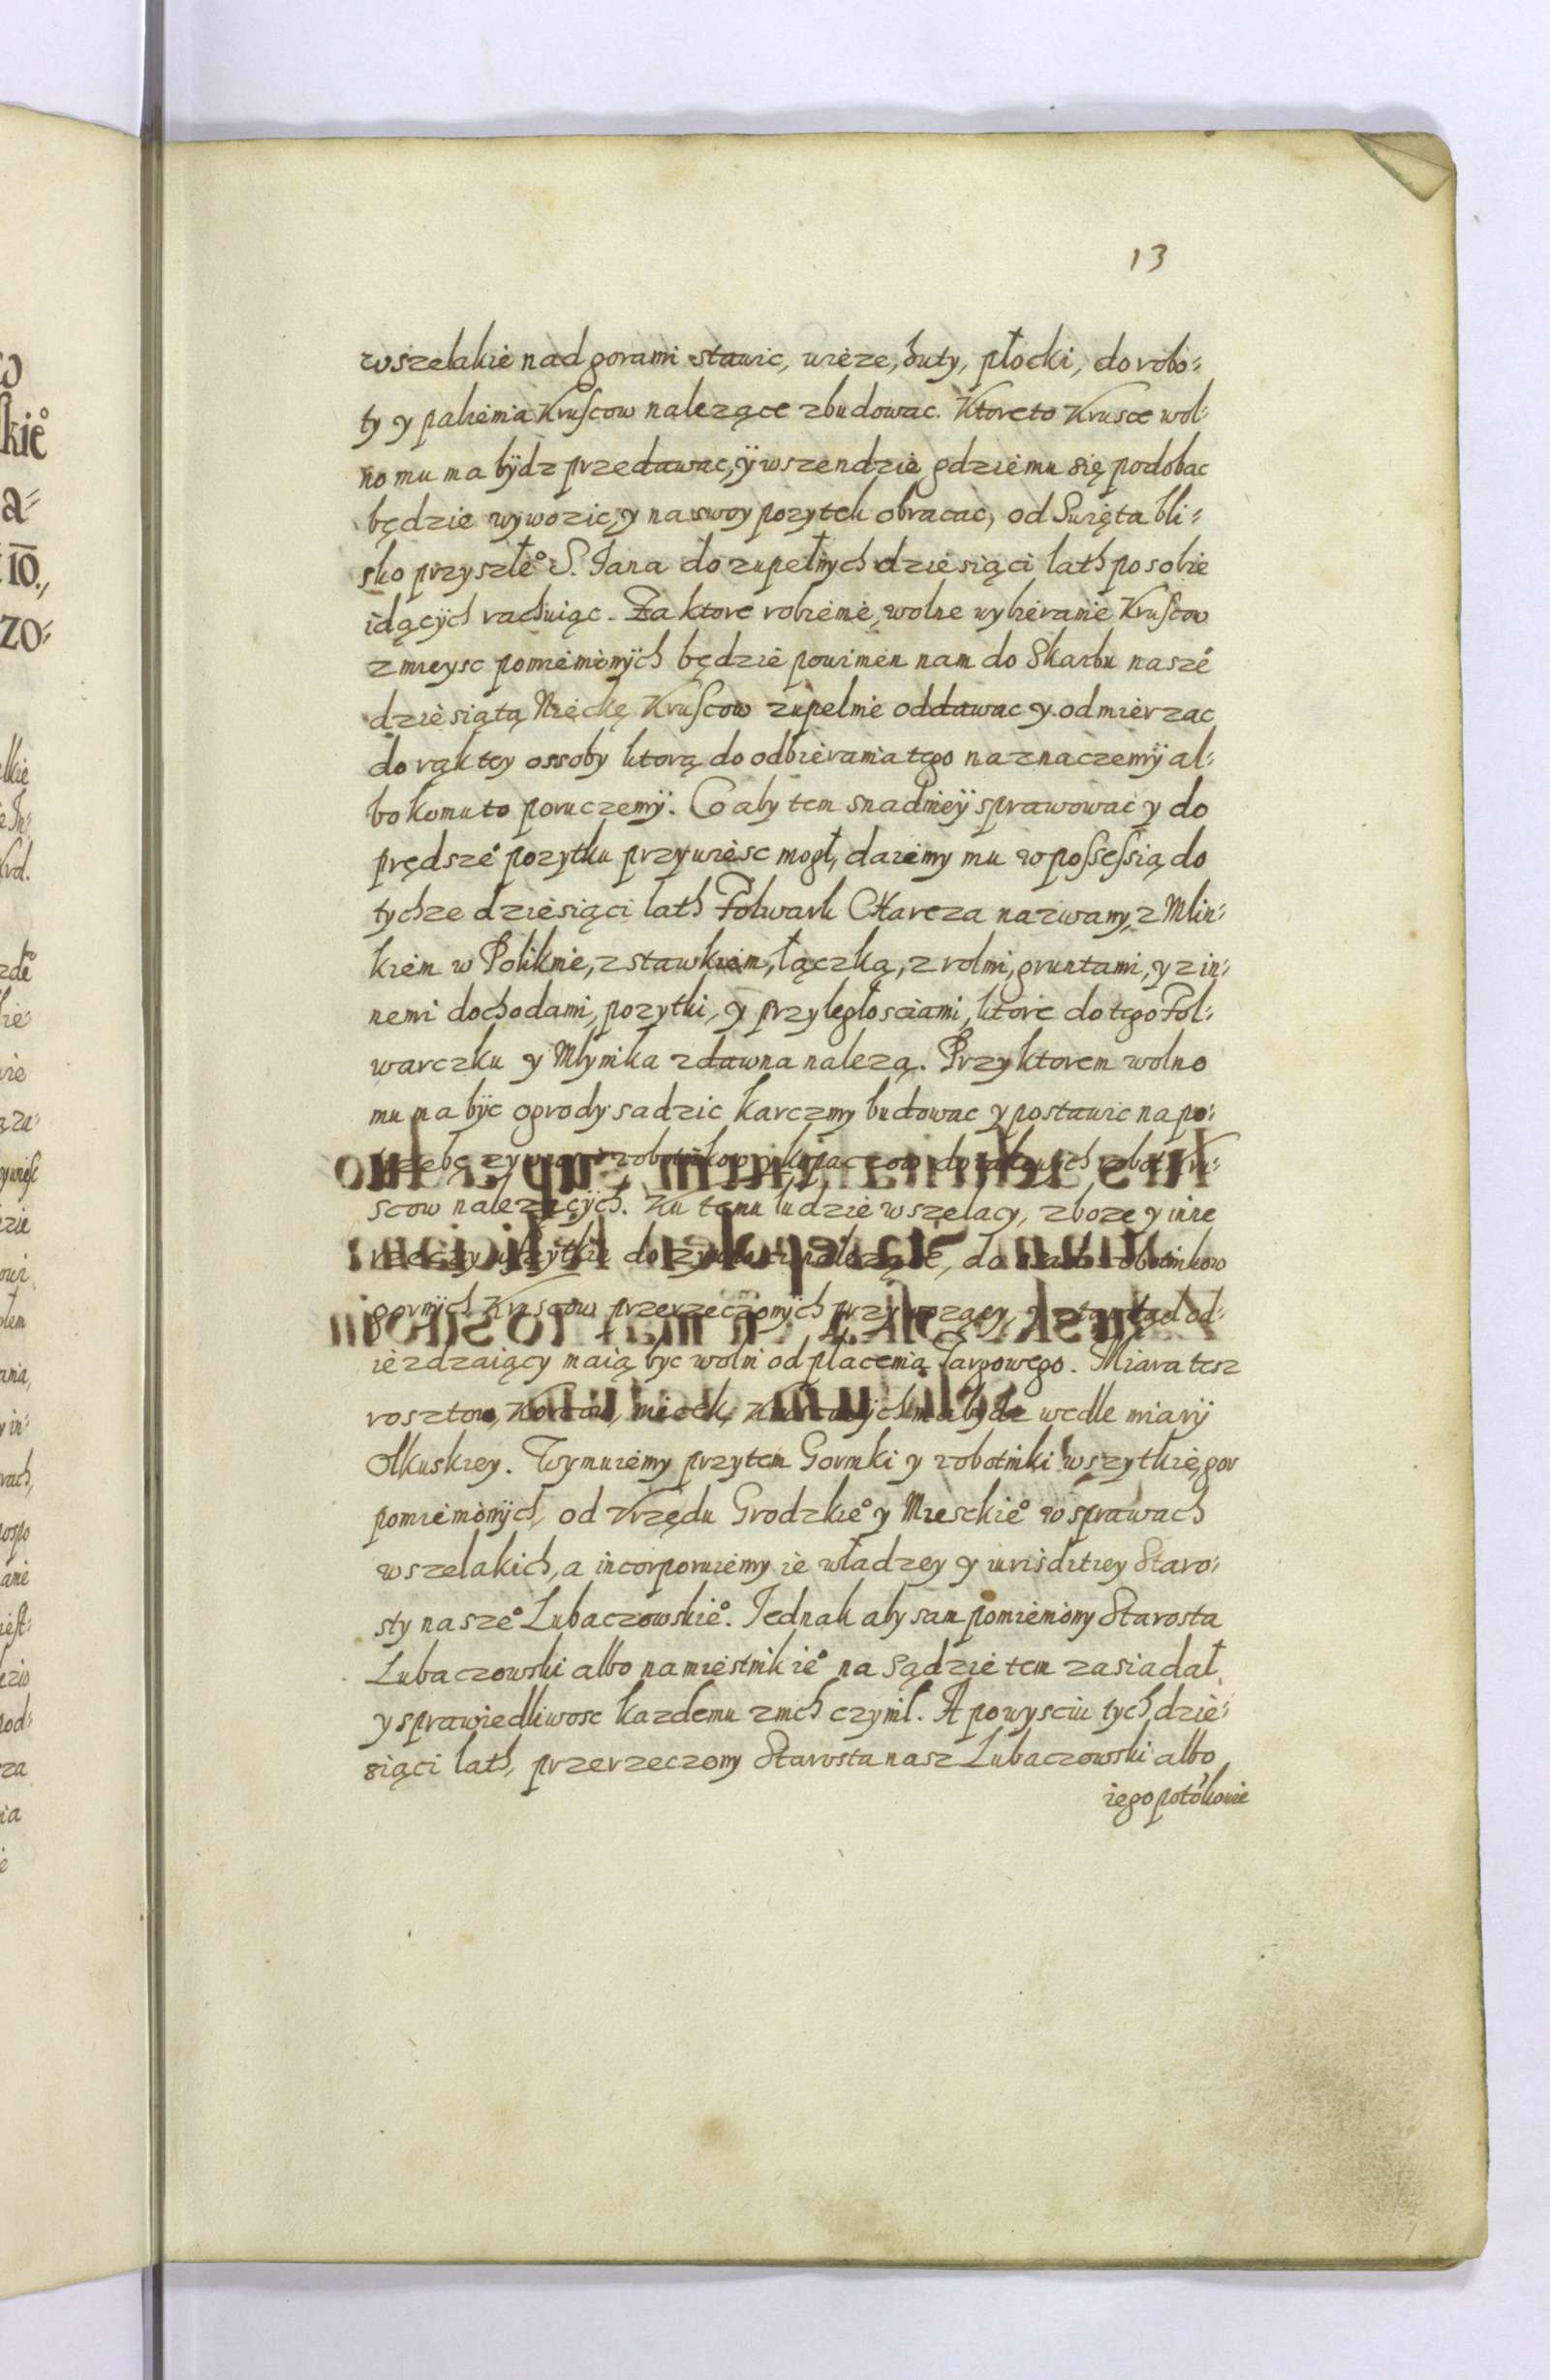 13
wszelakie nad gorami stawic, wieze, huty, płocki, do robo=
ty y palienia Kruscow nalezące zbudowac. Ktore to Krusce wol=
no mu ma bÿdz przedawac, ÿ wszendzie gdzie mu się podobac
będzie wywozic, y na swoy pozytek obracac, od Swięta bli=
sko przyszłe° S. Jana do zupełnych dziesiąci lath po sobie
idącÿch rachuiąc. Za ktore robienie, wolne wybieranie Kruscow
z mieysc pomienionÿch będzie powinien nam do Skarbu nasze°
dziesiątą Nieckę Kruscow zupelnie oddawac y odmierzac
do rąk tey ossoby ktorą do odbierania tego naznaczemÿ al=
bo komu to poruczemÿ. Co aby tem snadnieÿ sprawowac y do
prędsze° pozytku przywiesc mogł, daiemy mu w possessią do
tychze dziesiąci lath Folwark Charcza nazwany, z Mlin=
kiem w Poliknie, z stawkiem, łączką, z rolmi, gruntami, y z in=
nemi dochodami, pozytki, y przyległosciami, ktore do tego Fol=
warczku y Mlynika zdawna nalezą. Przyktorem wolno
mu ma bÿc ogrody sadzic karczmy budowac y postawic na po=
trzebę robotnikow y kopaczow do robot Kru=
scow nalezącÿch. Ku temu ludzie wszelacy, zboze y inne
rzeczy wszytkie do zywnosci nalezące, do robotnikow
gornÿch Kruscow przerzeczonÿch przywozący, y ztamtąd od=
iezdzaiący maią byc wolni od płacenia Targowego. Miara tesz
rosztow, Korcow, niecek, Kruscowÿch ma bydz wedle miarÿ
Olkuskiey. Wymuiemy przytem Gorniki y robotniki wszytkie gor
pomienionÿch, od Vrzędu Grodzkie° y Miesckie° w sprawach
wszelakich, a incorporuiemy ie władzey y iurisditiey Staro=
sty nasze° Lubaczowskie°. Jednak aby sam pomieniony Starosta
Lubaczowski albo namiestnik ie° na Sądzie tem zasiadał
y sprawiedliwosc kazdemu z nich czynił. A po wysciu tych dzie=
siąci lath, przerzeczony Starosta nasz Lubaczowski albo
iego potomkowie